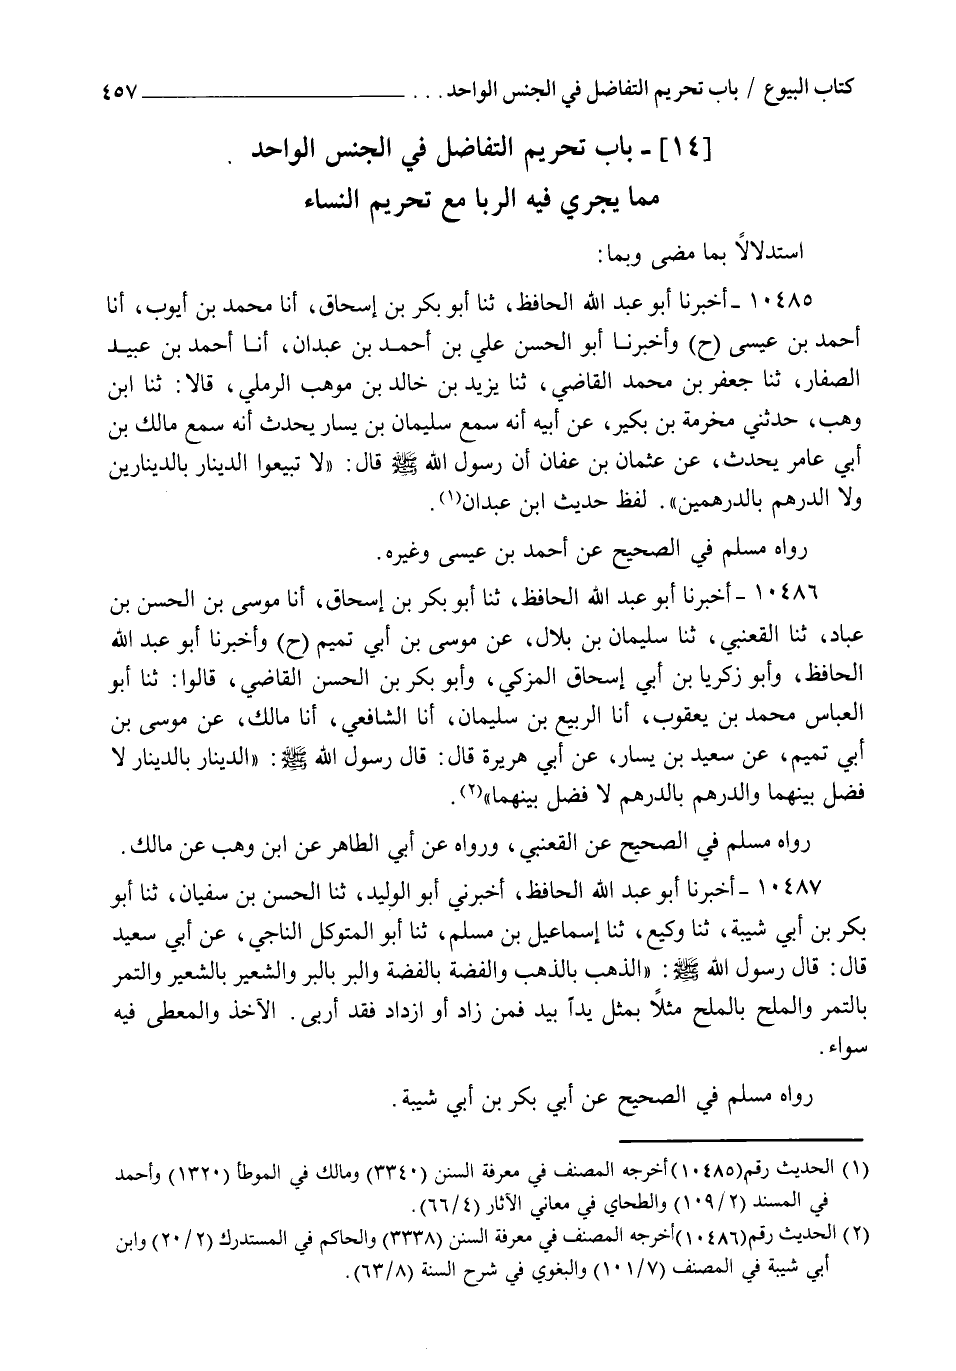 كتاب البيوع / باب تحريم التفاضل في الجنس الواحد . . . ٤٥٧
[١٤] - باب تحريم التفاضل في الجنس الواحد
مما يجري فيه الربا مع تحريم النساء
استدلالاً بما مضى وبما:
١٠٤٨٥ - أخبرنا أبو عبد الله الحافظ، ثنا أبو بكر بن إسحاق، أنا محمد بن أيوب، أنا
أحمد بن عيسى (ح) وأخبرنا أبو الحسن علي بن أحمد بن عبدان، أنا أحمد بن عبيد
الصفار، ثنا جعفر بن محمد القاضي، ثنا يزيد بن خالد بن موهب الرملي، قالا: ثنا ابن
وهب، حدثني مخرمة بن بكير، عن أبيه أنه سمع سليمان بن يسار يحدث أنه سمع مالك بن
أبي عامر يحدث، عن عثمان بن عفان أن رسول الله ﷺ قال: «لا تبيعوا الدينار بالدينارين
ولا الدرهم بالدرهمين». لفظ حديث ابن عبدان(١).
رواه مسلم في الصحيح عن أحمد بن عيسى وغيره.
١٠٤٨٦ - أخبرنا أبو عبد الله الحافظ، ثنا أبو بكر بن إسحاق، أنا موسى بن الحسن بن
عباد، ثنا القعنبي، ثنا سليمان بن بلال، عن موسى بن أبي تميم (ح) وأخبرنا أبو عبد الله
الحافظ، وأبو زكريا بن أبي إسحاق المزكي، وأبو بكر بن الحسن القاضي، قالوا: ثنا أبو
العباس محمد بن يعقوب، أنا الربيع بن سليمان، أنا الشافعي، أنا مالك، عن موسى بن
أبي تميم، عن سعيد بن يسار، عن أبي هريرة قال: قال رسول الله ﷺ: «الدينار بالدينار لا
فضل بينهما والدرهم بالدرهم لا فضل بينهما»(٢).
رواه مسلم في الصحيح عن القعنبي، ورواه عن أبي الطاهر عن ابن وهب عن مالك.
١٠٤٨٧ - أخبرنا أبو عبد الله الحافظ، أخبرني أبو الوليد، ثنا الحسن بن سفيان، ثنا أبو
بكر بن أبي شيبة، ثنا وكيع، ثنا إسماعيل بن مسلم، ثنا أبو المتوكل الناجي، عن أبي سعيد
قال: قال رسول الله ﷺ: «الذهب بالذهب والفضة بالفضة والبر بالبر والشعير بالشعير والتمر
بالتمر والملح بالملح مثلاً بمثل يداً بيد فمن زاد أو ازداد فقد أربى. الآخذ والمعطى فيه
سواء.
رواه مسلم في الصحيح عن أبي بكر بن أبي شيبة.
(١) الحديث رقم(١٠٤٨٥)أخرجه المصنف في معرفة السنن (٣٣٤٠) ومالك في الموطأ (١٣٢٠) وأحمد
في المسند (١٠٩/٢) والطحاي في معاني الآثار (٦٦/٤).
(٢) الحديث رقم(١٠٤٨٦)أخرجه المصنف في معرفة السنن (٣٣٣٨) والحاكم في المستدرك (٢٠/٢) وابن
أبي شيبة في المصنف (١٠١/٧) والبغوي في شرح السنة (٦٣/٨).